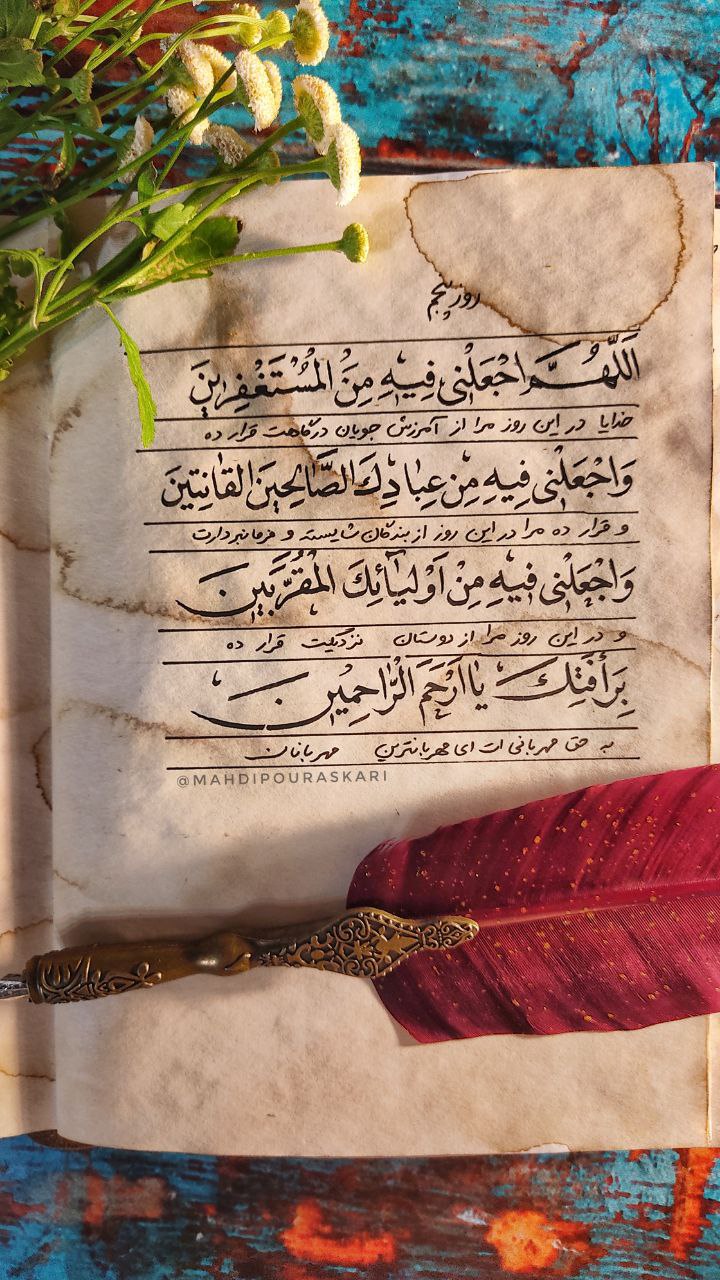 روز پنجم
اَللّهُمَّ اجْعَلْنی فیهِ مِنَ الْمُسْتَغْفِرینَ
خدایا در این روز مرا از آمرزش جویان درگاهت قرار ده
وَاجْعَلْنی فیهِ مِن عِبادِكَ الصّالِحینَ القانِتینَ
و قرار ده مرا در این روز از بندگان شایسته و فرمانبردارت
وَاجْعَلْنی فیهِ مِنْ اَوْلیائِكَ الْمُقَرَّبینَ
و در این روز مرا از دوستان نزدیکت قرار ده
بِرَأفَتِكَ یا اَرْحَمَ الْرّاحِمینَ
به حق مهربانی ات ای مهربانترین مهربانان
@MAHDIPOURASKARI